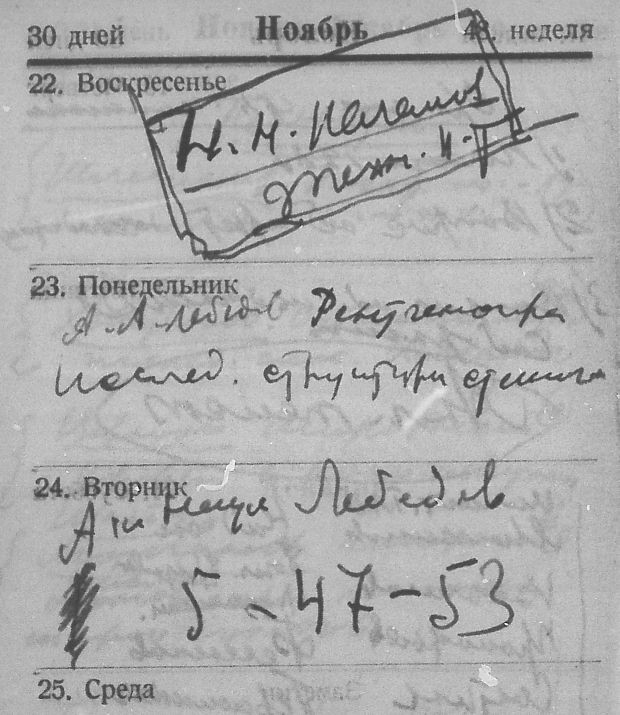 30 дней Ноябрь 48. неделя
22. Воскресенье
23. Понедельник
А. А. Лебедев Рентгеногра
исслед. структуры стекла
24. Вторник
Лебедев
5-47-53
25. Среда